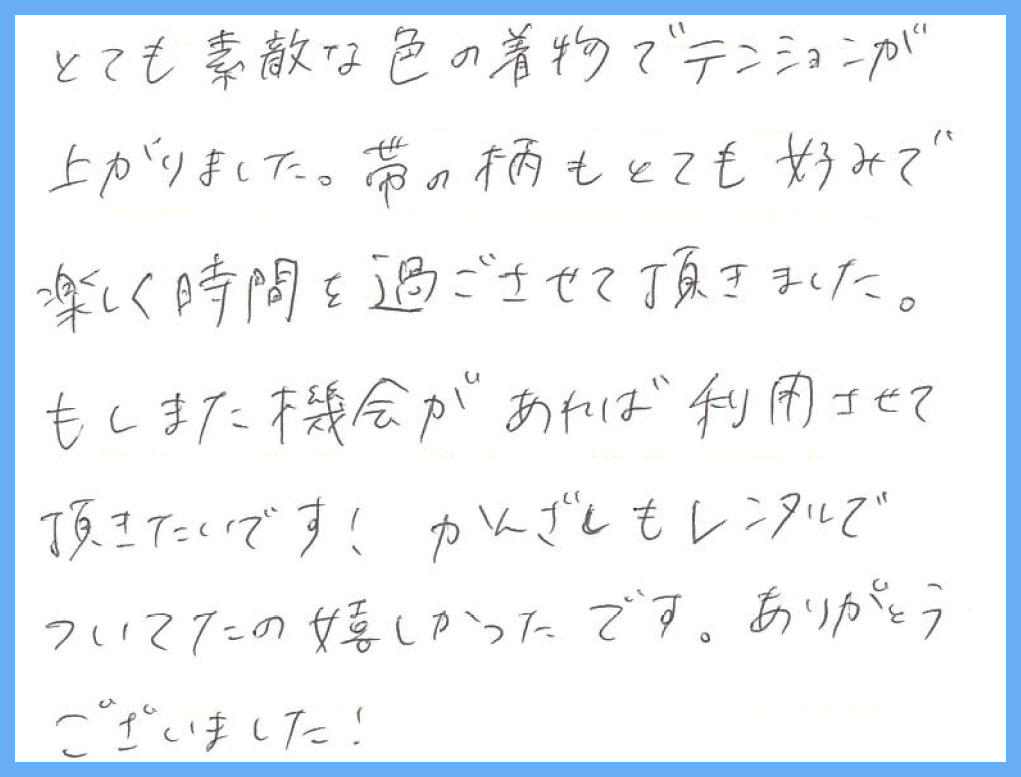 とても素敵な色の着物でテンションが
上がりました。帯の柄もとても好みで
楽しく時間を過ごさせて頂きました。
もしまた機会があれば利用させて
頂きたいです！ かんざしもレンタルで
ついてたの嬉しかったです。ありがとう
ございました！